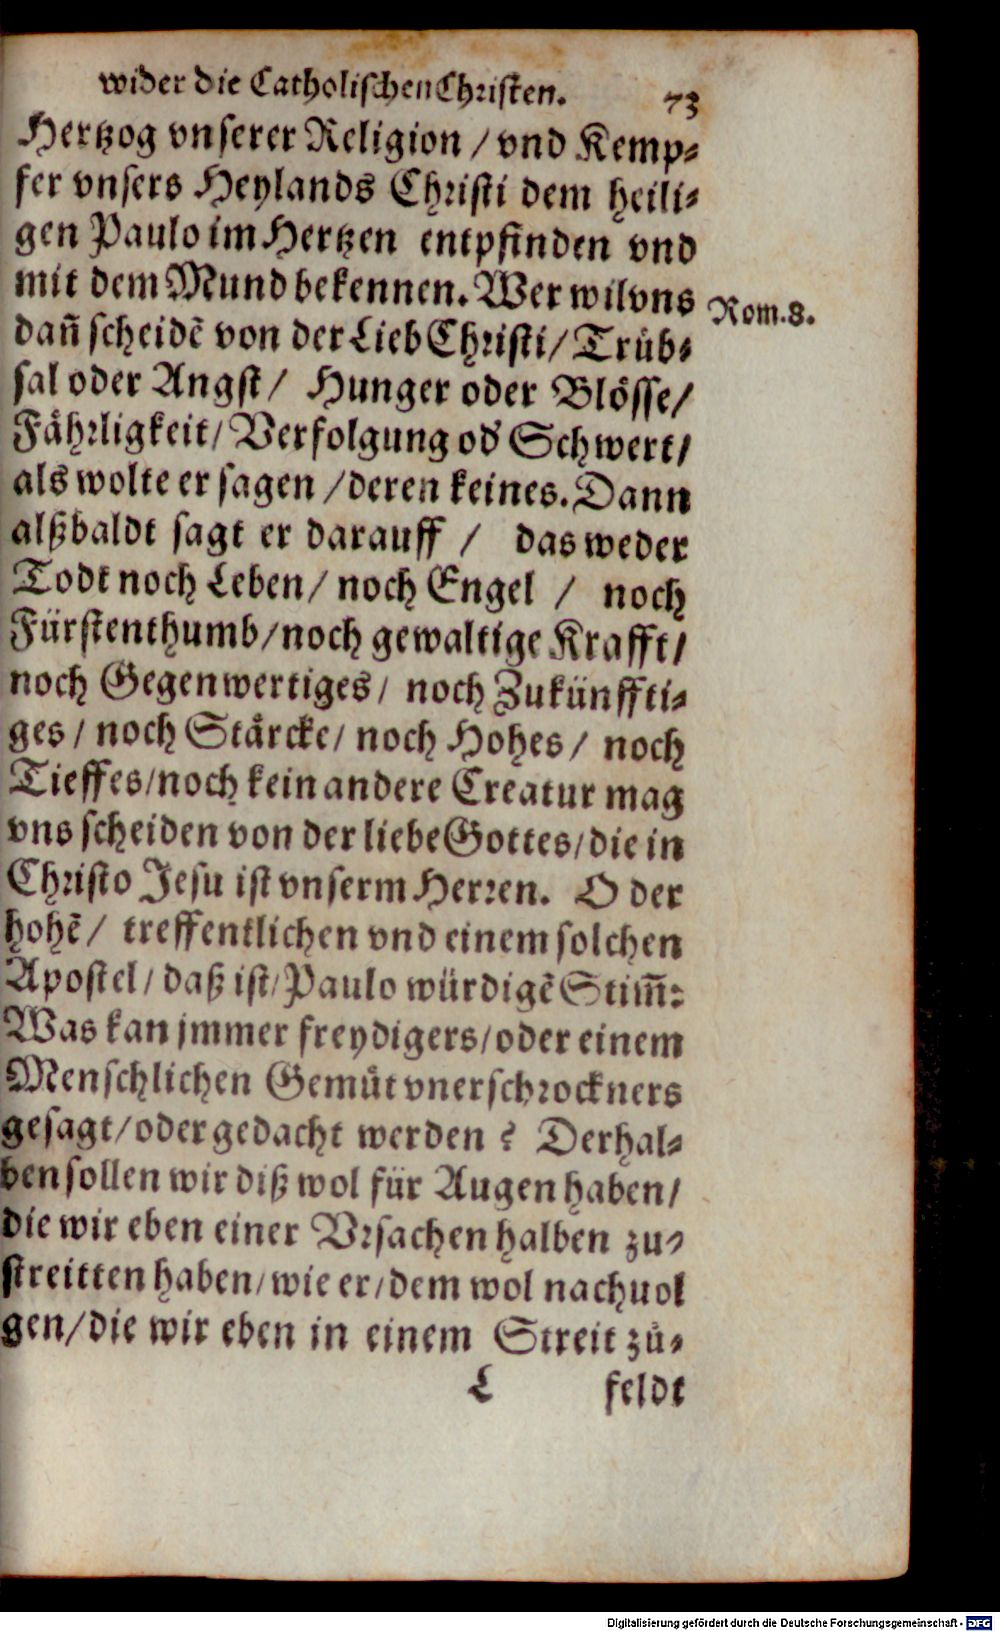 wider die Catholischen Christen. 73
Hertzog vnserer Religion / vnd Kemp⸗
fer vnsers Heylands Christi dem heili⸗
gen Paulo im Hertzen entpfinden vnd
mit dem Mund bekennen. Wer wil vns
Rom. 8.
dañ scheidẽ von der Lieb Christi / Trůb⸗
sal oder Angst / Hunger oder Blösse /
Fährligkeit / Verfolgung od' Schwert /
als wolte er sagen / deren keines. Dann
alßbaldt sagt er darauff / das weder
Todt noch Leben / noch Engel / noch
Fürstenthumb / noch gewaltige Krafft /
noch Gegenwertiges / noch Zukünffti⸗
ges / noch Stärcke / noch Hohes / noch
Tieffes / noch kein andere Creatur mag
vns scheiden von der liebe Gottes / die in
Christo Jesu ist vnserm Herren. O der
hohẽ / treffentlichen vnd einem solchen
Apostel / daß ist / Paulo würdigẽ Stim̃:
Was kan jmmer freydigers / oder einem
Menschlichen Gemůt vnerschrockners
gesagt / oder gedacht werden? Derhal⸗
ben sollen wir diß wol für Augen haben /
die wir eben einer Vrsachen halben zu⸗
streitten haben / wie er / dem wol nachuol
gen / die wir eben in einem Streit zů⸗
L feldt
Digitalisierung gefördert durch die Deutsche Forschungsgemeinschaft - DFG